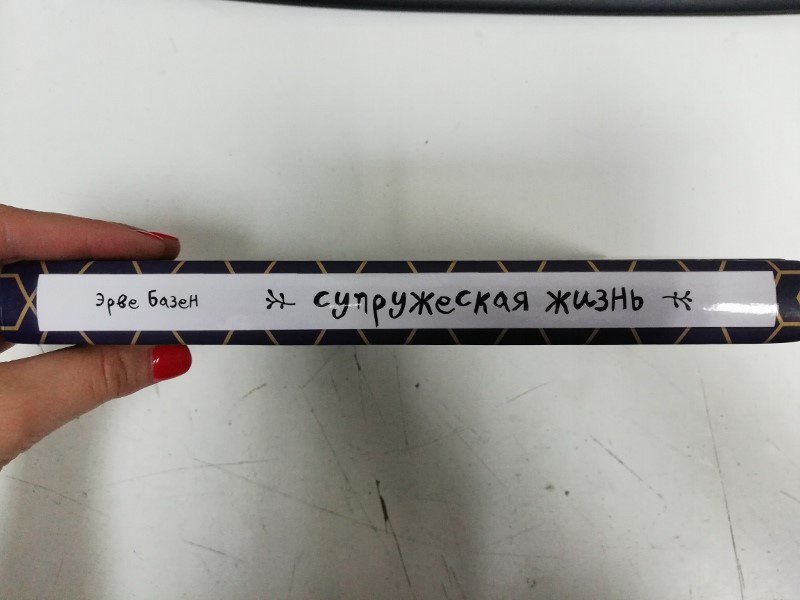 Эрве Базен супружеская жизнь